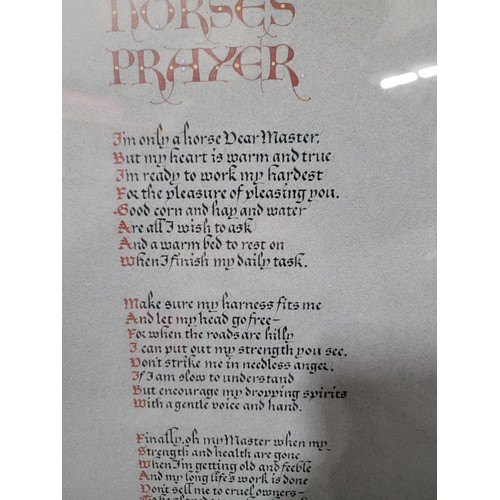 HORSES
PRAYER
I'm only a horse Dear Master,
But my heart is warm and true
I'm ready to work my hardest
For the pleasure of pleasing you.
Good corn and hay and water
Are all I wish to ask
And a warm bed to rest on
When I finish my daily task.
Make sure my harness fits me
And let my head go free—
For when the roads are hilly
I can put out my strength you see.
Don't strike me in needless anger,
If I am slow to understand
But encourage my dropping spirits
With a gentle voice and hand.
Finally, oh my Master when my
Strength and health are gone
When I'm getting old and feeble
And my long life's work is done
Don't sell me to cruel owners—